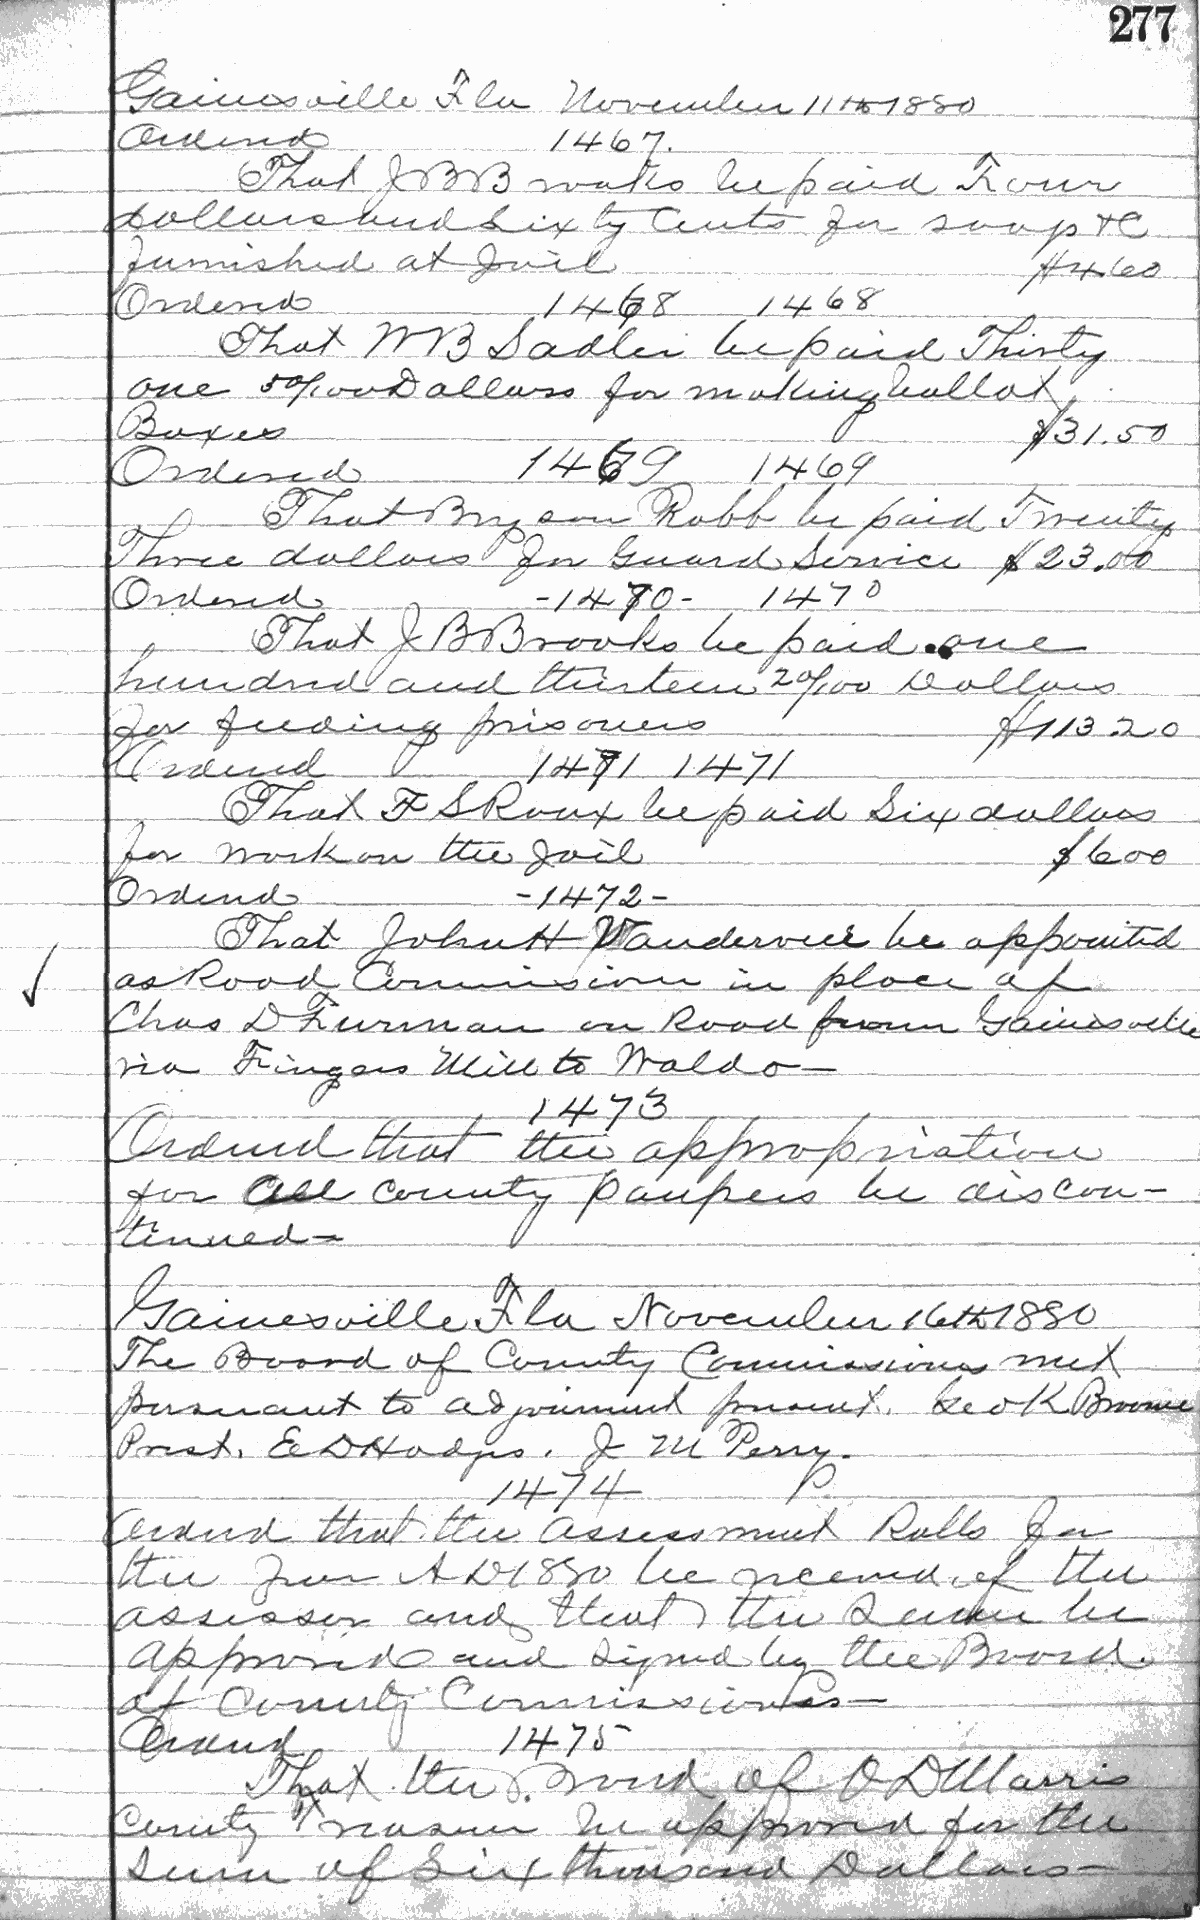 277
Gainesville Fla November 11th 1880
Ordered 1467.
That J B Brooks be paid Four
dollars and Sixty Cents for soap &C
furnished at Jail $4.60
Ordered 1468 1468
That W B Sadler be paid Thirty
one 50/100 Dollars for making ballot
Boxes $31.50
Ordered 1469 1469
That Bryson Robb be paid Twenty
Three dollars for Guard Service $23.00
Ordered -1470- 1470
That J B Brooks be paid one
hundred and thirteen 20/100 Dollars
for feeding prisoners $113 20
Ordered 1471 1471
That F S Roux be paid Six dollars
for work on the Jail $6 00
Ordered -1472-
That John H Vanderveer be appointed
as Road Commission in place of
Chas D Furman on Road from Gainesville
via Fingers Mill to Waldo—
1473
Ordered that the appropriation
for all County Paupers be discon-
tinued—
Gainesville Fla November 16th 1880
The Board of County Commissioners met
pursuant to adjournment present. Geo K Broome
Prest. E D Hodges. J M Perry.
1474
Ordered that the assessment Rolls for
the Year A D 1880 be received of the
assessor and that the Same be
approved and signed by the Board
of County Commissioners—
Ordered 1475
That the Bond of O D Marris
County Treasurer be approved for the
Sum of Six thousand Dollars—